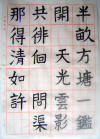 半畝方塘一鑑
開天光雲影
共徘徊問渠
那得清如許